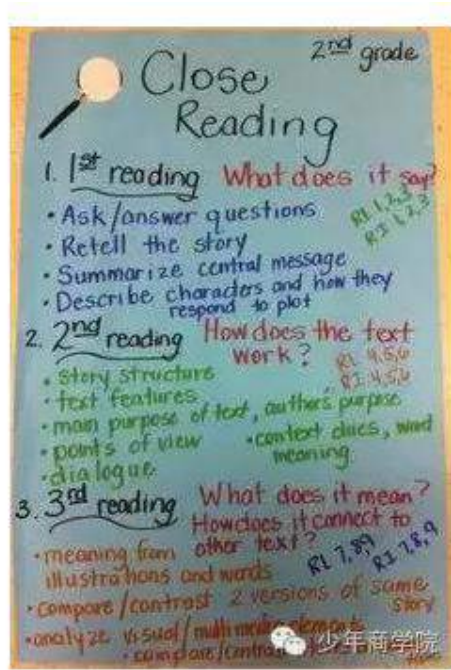 2nd grade
Close
Reading
1. 1st reading What does it say?
• Ask/answer questions
RL 1,2,3
• Retell the story
RI 1,2,3
• Summarize central message
• Describe characters and how they
respond to plot
2. 2nd reading How does the text
work?
RL 4,5,6
• story structure
RI 4,5,6
• text features
• main purpose of text, author's purpose
• points of view • context clues, word
meaning
• dialogue
3. 3rd reading What does it mean?
How does it connect to
other text?
• meaning from
illustrations and words
RL 7,8,9
RI 7,8,9
• compare/contrast 2 versions of same
story
• analyze visual/multimedia elements
• compare/contrast
少年商学院